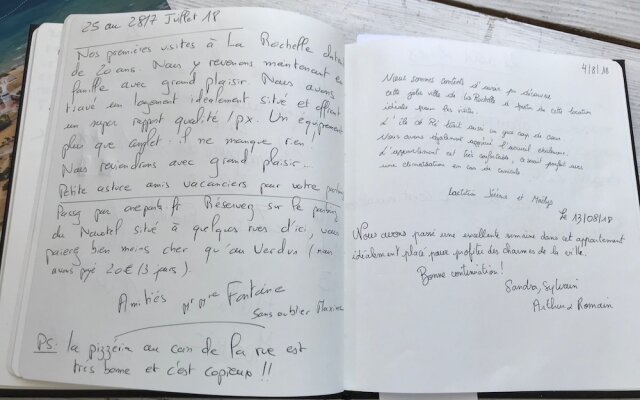 25 au 28/7 Juillet 18
Nos premières visites à La Rochelle datent
de 20 ans. Nous y revenons maintenant en
famille avec grand plaisir. Nous avons
trouvé un logement idéalement situé et offrant
un super rapport qualité/px. Un équipement
plus que complet : il ne manque rien !
Nous reviendrons avec grand plaisir...
Petite astuce amis vacanciers pour votre parking
Passez par onepark.fr Réservez sur le parking
du Novotel situé à quelques rues d'ici, vous
paierez bien moins cher qu'au Verdun (nous
avons payé 20€/3 jours).
Amitiés Mr Mme Fontaine
Sans oublier Maxime
PS: la pizzéria au coin de la rue est
très bonne et c'est copieux !!
4/8/18
Nous sommes contents d'avoir pu découvrir
cette jolie ville de La Rochelle à partir de cette location
idéale pour les visites.
L'île de Ré était aussi un gros coup de cœur.
Nous avons également apprécié l'accueil chaleureux.
L'appartement est très confortable, il serait parfait avec
une climatisation en cas de canicule
Laetitia et Maëlys
Le 13/08/18
Nous avons passé une excellente semaine dans cet appartement
idéalement placé pour profiter des charmes de la ville.
Bonne continuation !
Sandra, Sylvain
Arthur & Romain